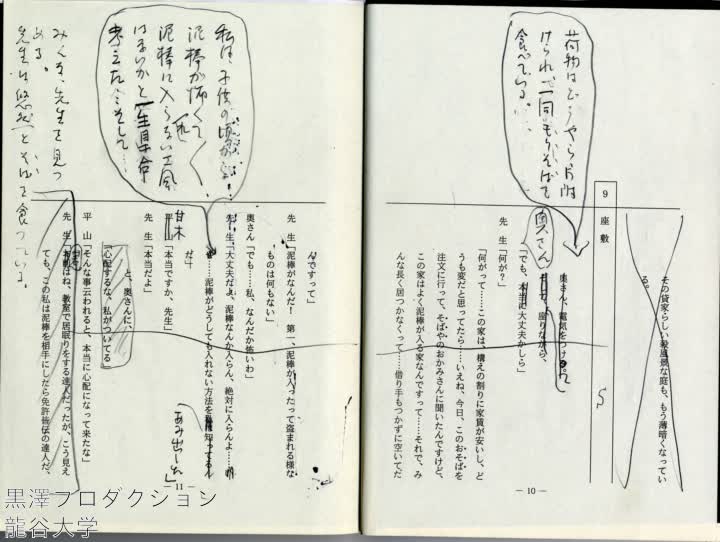 その貸家らしい殺風景な庭も、もう薄暗くなってい
る。
9 座敷
荷物はどうやら片附
けられて、一同もりそばを
食べている。
奥さん、電気をつけ
奥さん
座りながら、
「でも、本当に大丈夫かしら」
先　生「何が？」
「何がって……この家は、構えの割りに家賃が安いし、ど
うも変だと思ってたら……いえね、今日、このおそばを
注文に行って、そばやのおかみさんに聞いたんですけど、
この家はよく泥棒が入る家なんですって……それで、み
んな長く居つかなくって……借り手もつかずに空いてだ
― 10 ―
んですって」
先　生「泥棒がなんだ！　第一、泥棒が入ったって盗まれる様な
ものは何もない」
奥さん「でも……私、なんだか怖いわ」
先　生「大丈夫だよ、泥棒なんか入らん、絶対に入らんよ……
……泥棒がどうしても入れない方法を
あみ出した」
私は、子供の頃から
泥棒が怖くて
泥棒に入らない工風
はないかと一生懸命
考えた……そして……
甘木
平山「本当ですか、先生」
先　生「本当だよ」
と、奥さんに、
「心配するな、私がついてる」
平　山「そんな事云われると、本当に心配になって来たな」
先　生「はね、教室で居眠りをする達人だったが、こう見え
ても、この私は泥棒を相手にしたら免許皆伝の達人だ、
みんな、先生を見つ
める。
先生は悠然とそばを食っている。
― 11 ―
黒澤プロダクション
龍谷大学